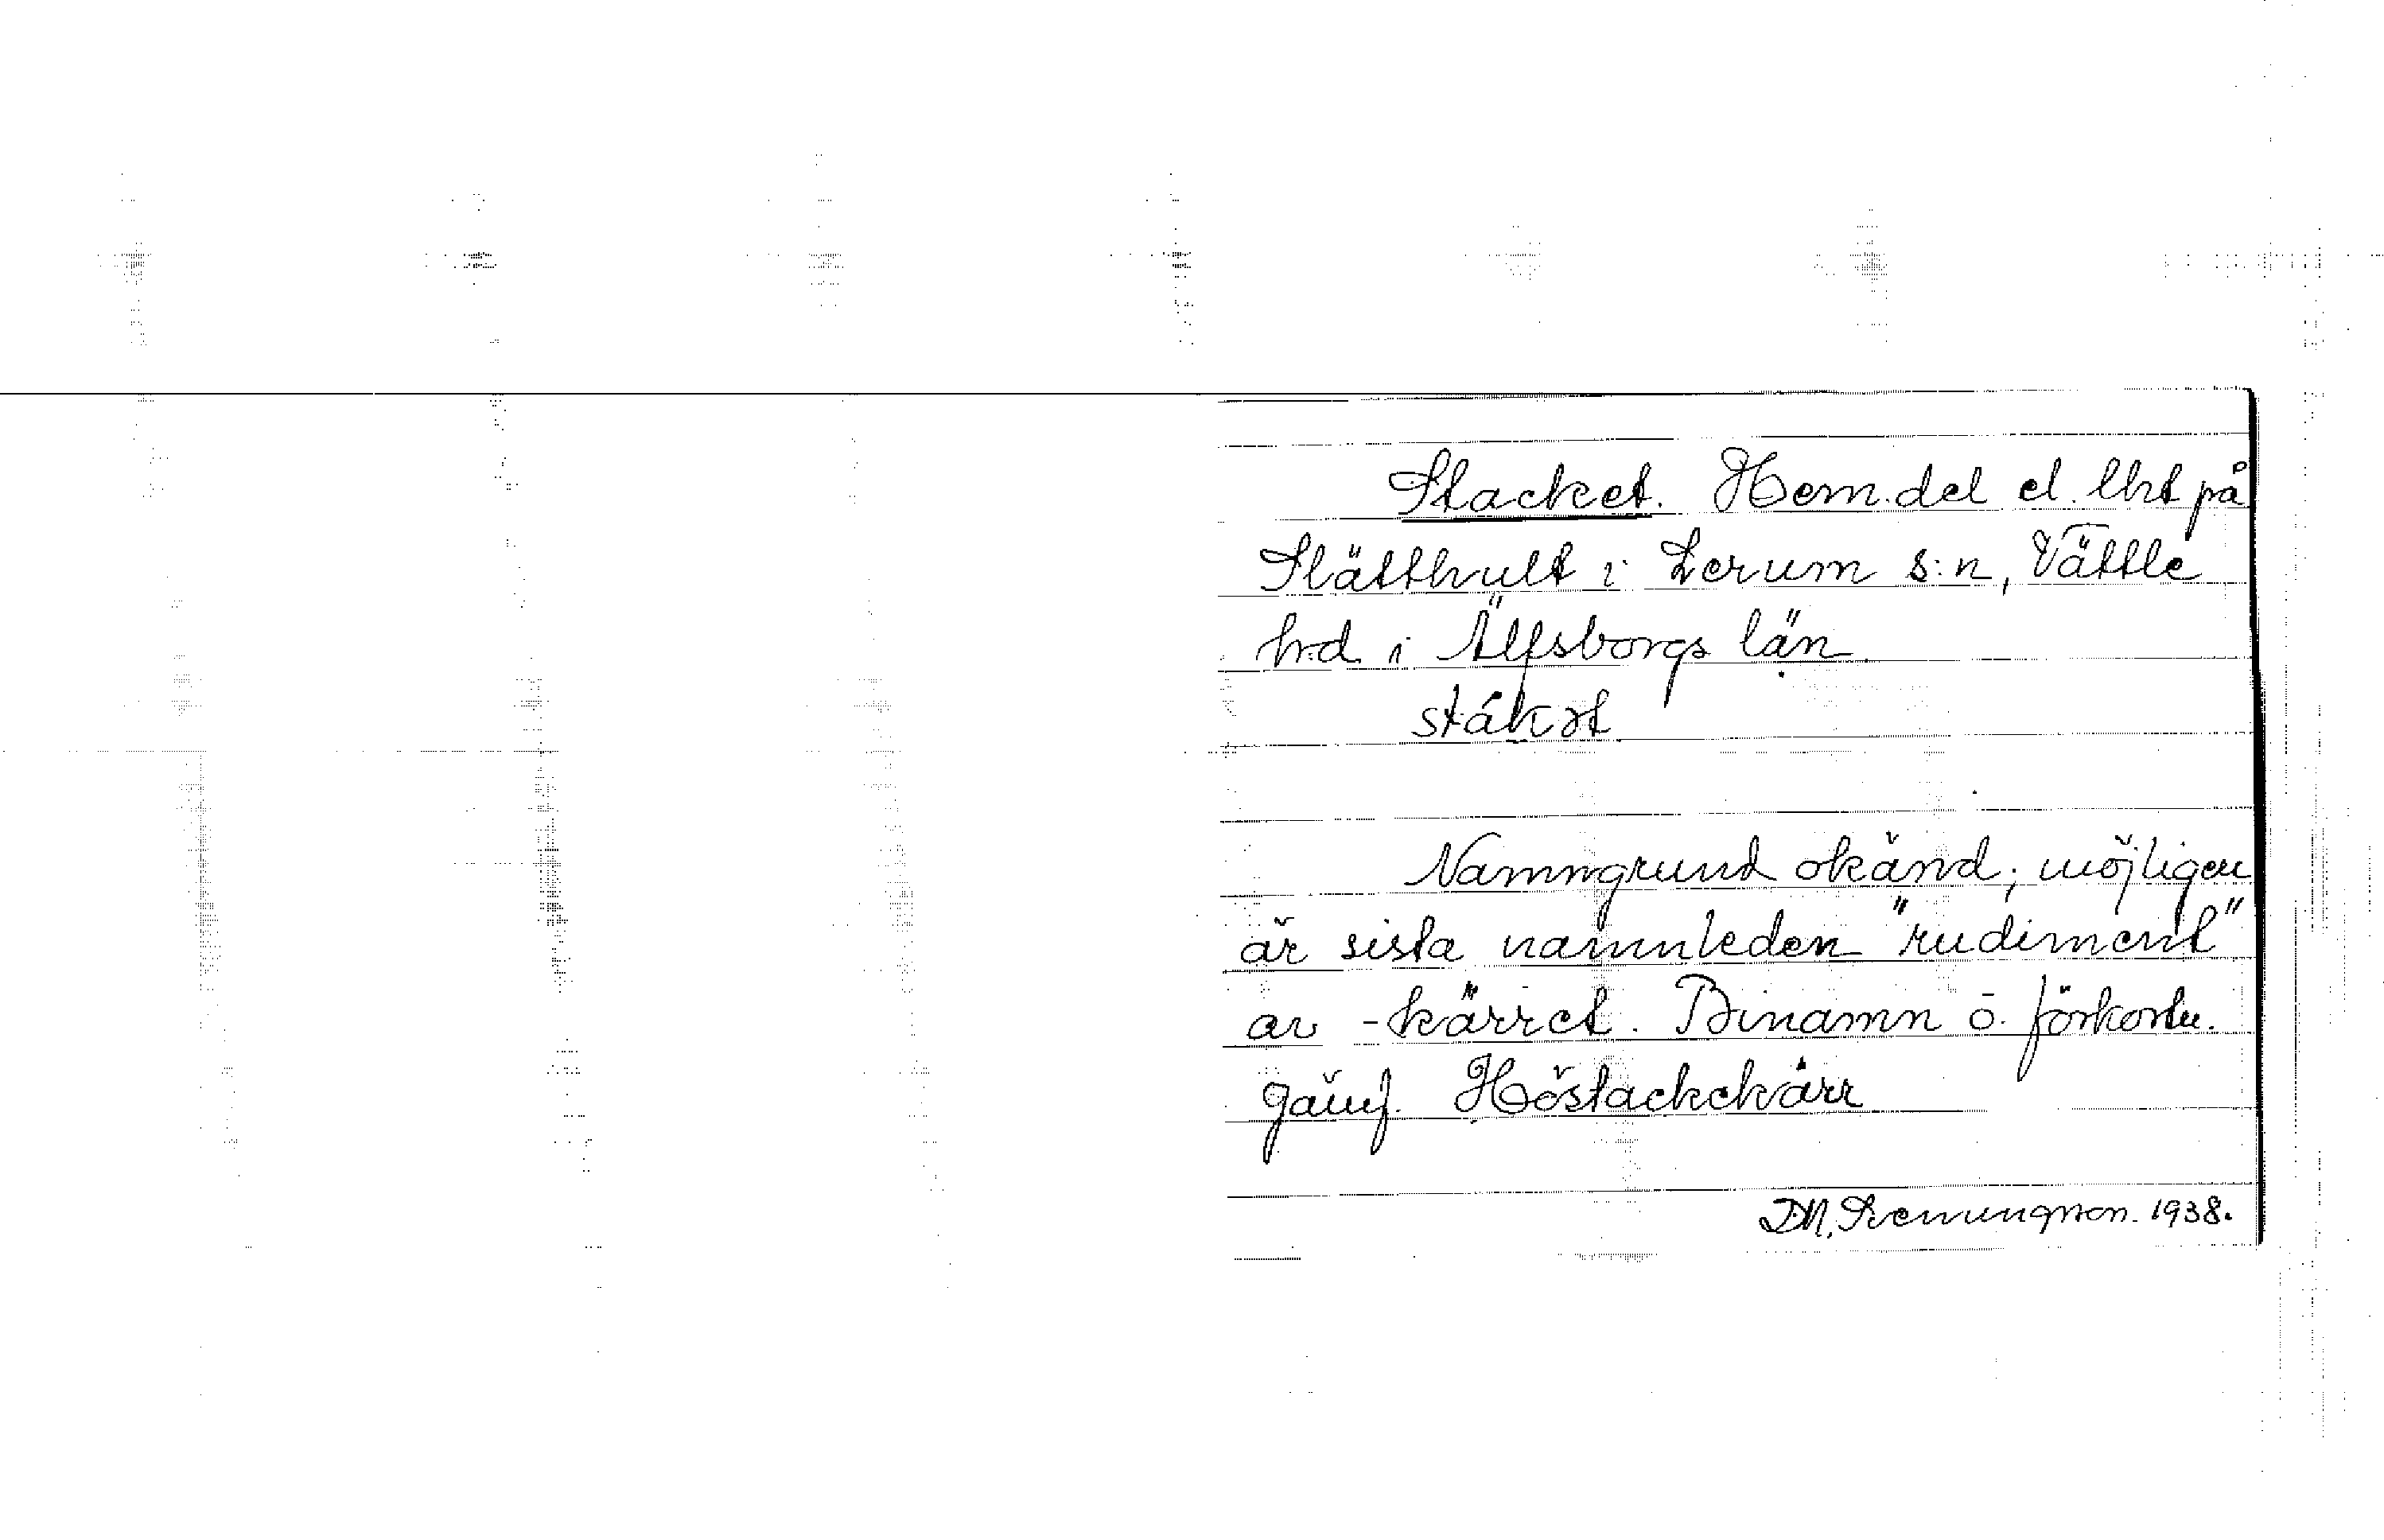 Stacket. Hem.del el. lht på
Slätthult i Lerum s:n, Vättle
hd. i Älfsborgs län.
stákət
Namngrund okänd; möjligen
är sista namnleden "rudiment"
av -kärret. Binamn o. förkortn.
jämf. Höstackekärr
D.N. Svenungsson. 1938.